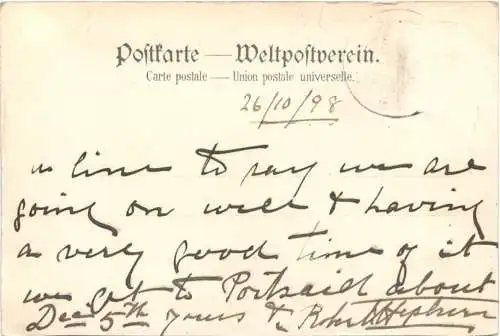 Postkarte — Weltpostverein.
Carte postale — Union postale universelle.
26/10/98
a line to say we are
going on well & having
a very good time of it
we get to Portsaid about
Dec 5th yours &c Robt Hepburn